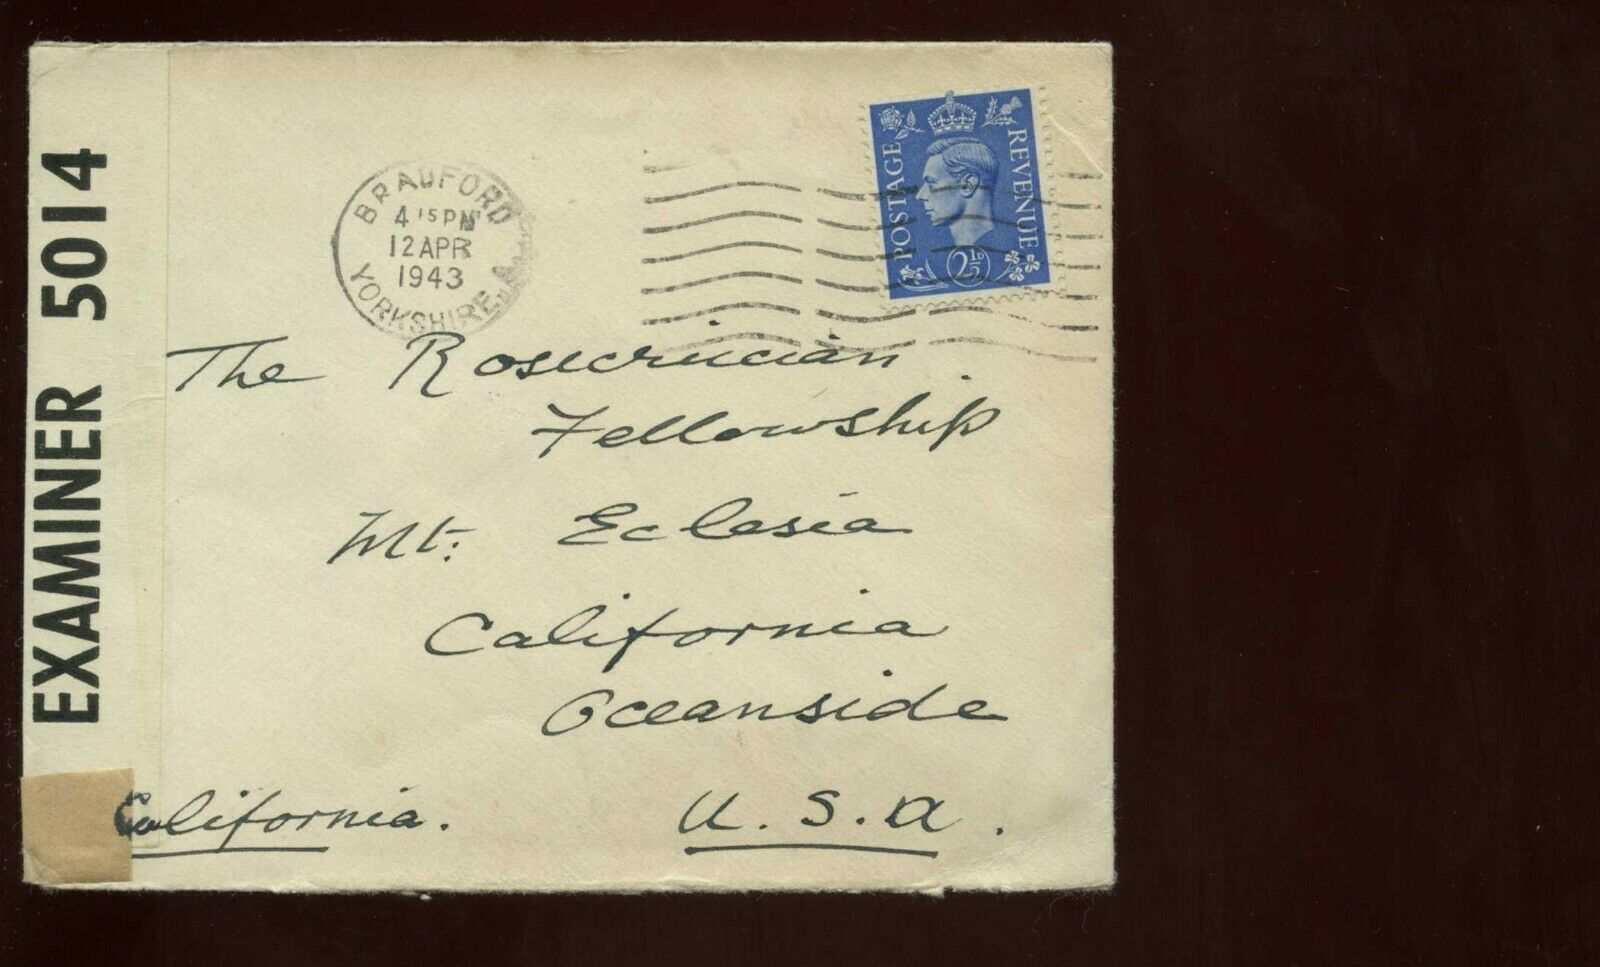 EXAMINER 5014
BRADFORD
4 15 PM
12 APR
1943
YORKSHIRE A
POSTAGE
REVENUE
2½D
The Rosecrucian
Fellowship
Mt. Eclesia
California
Oceanside
California. U.S.A.